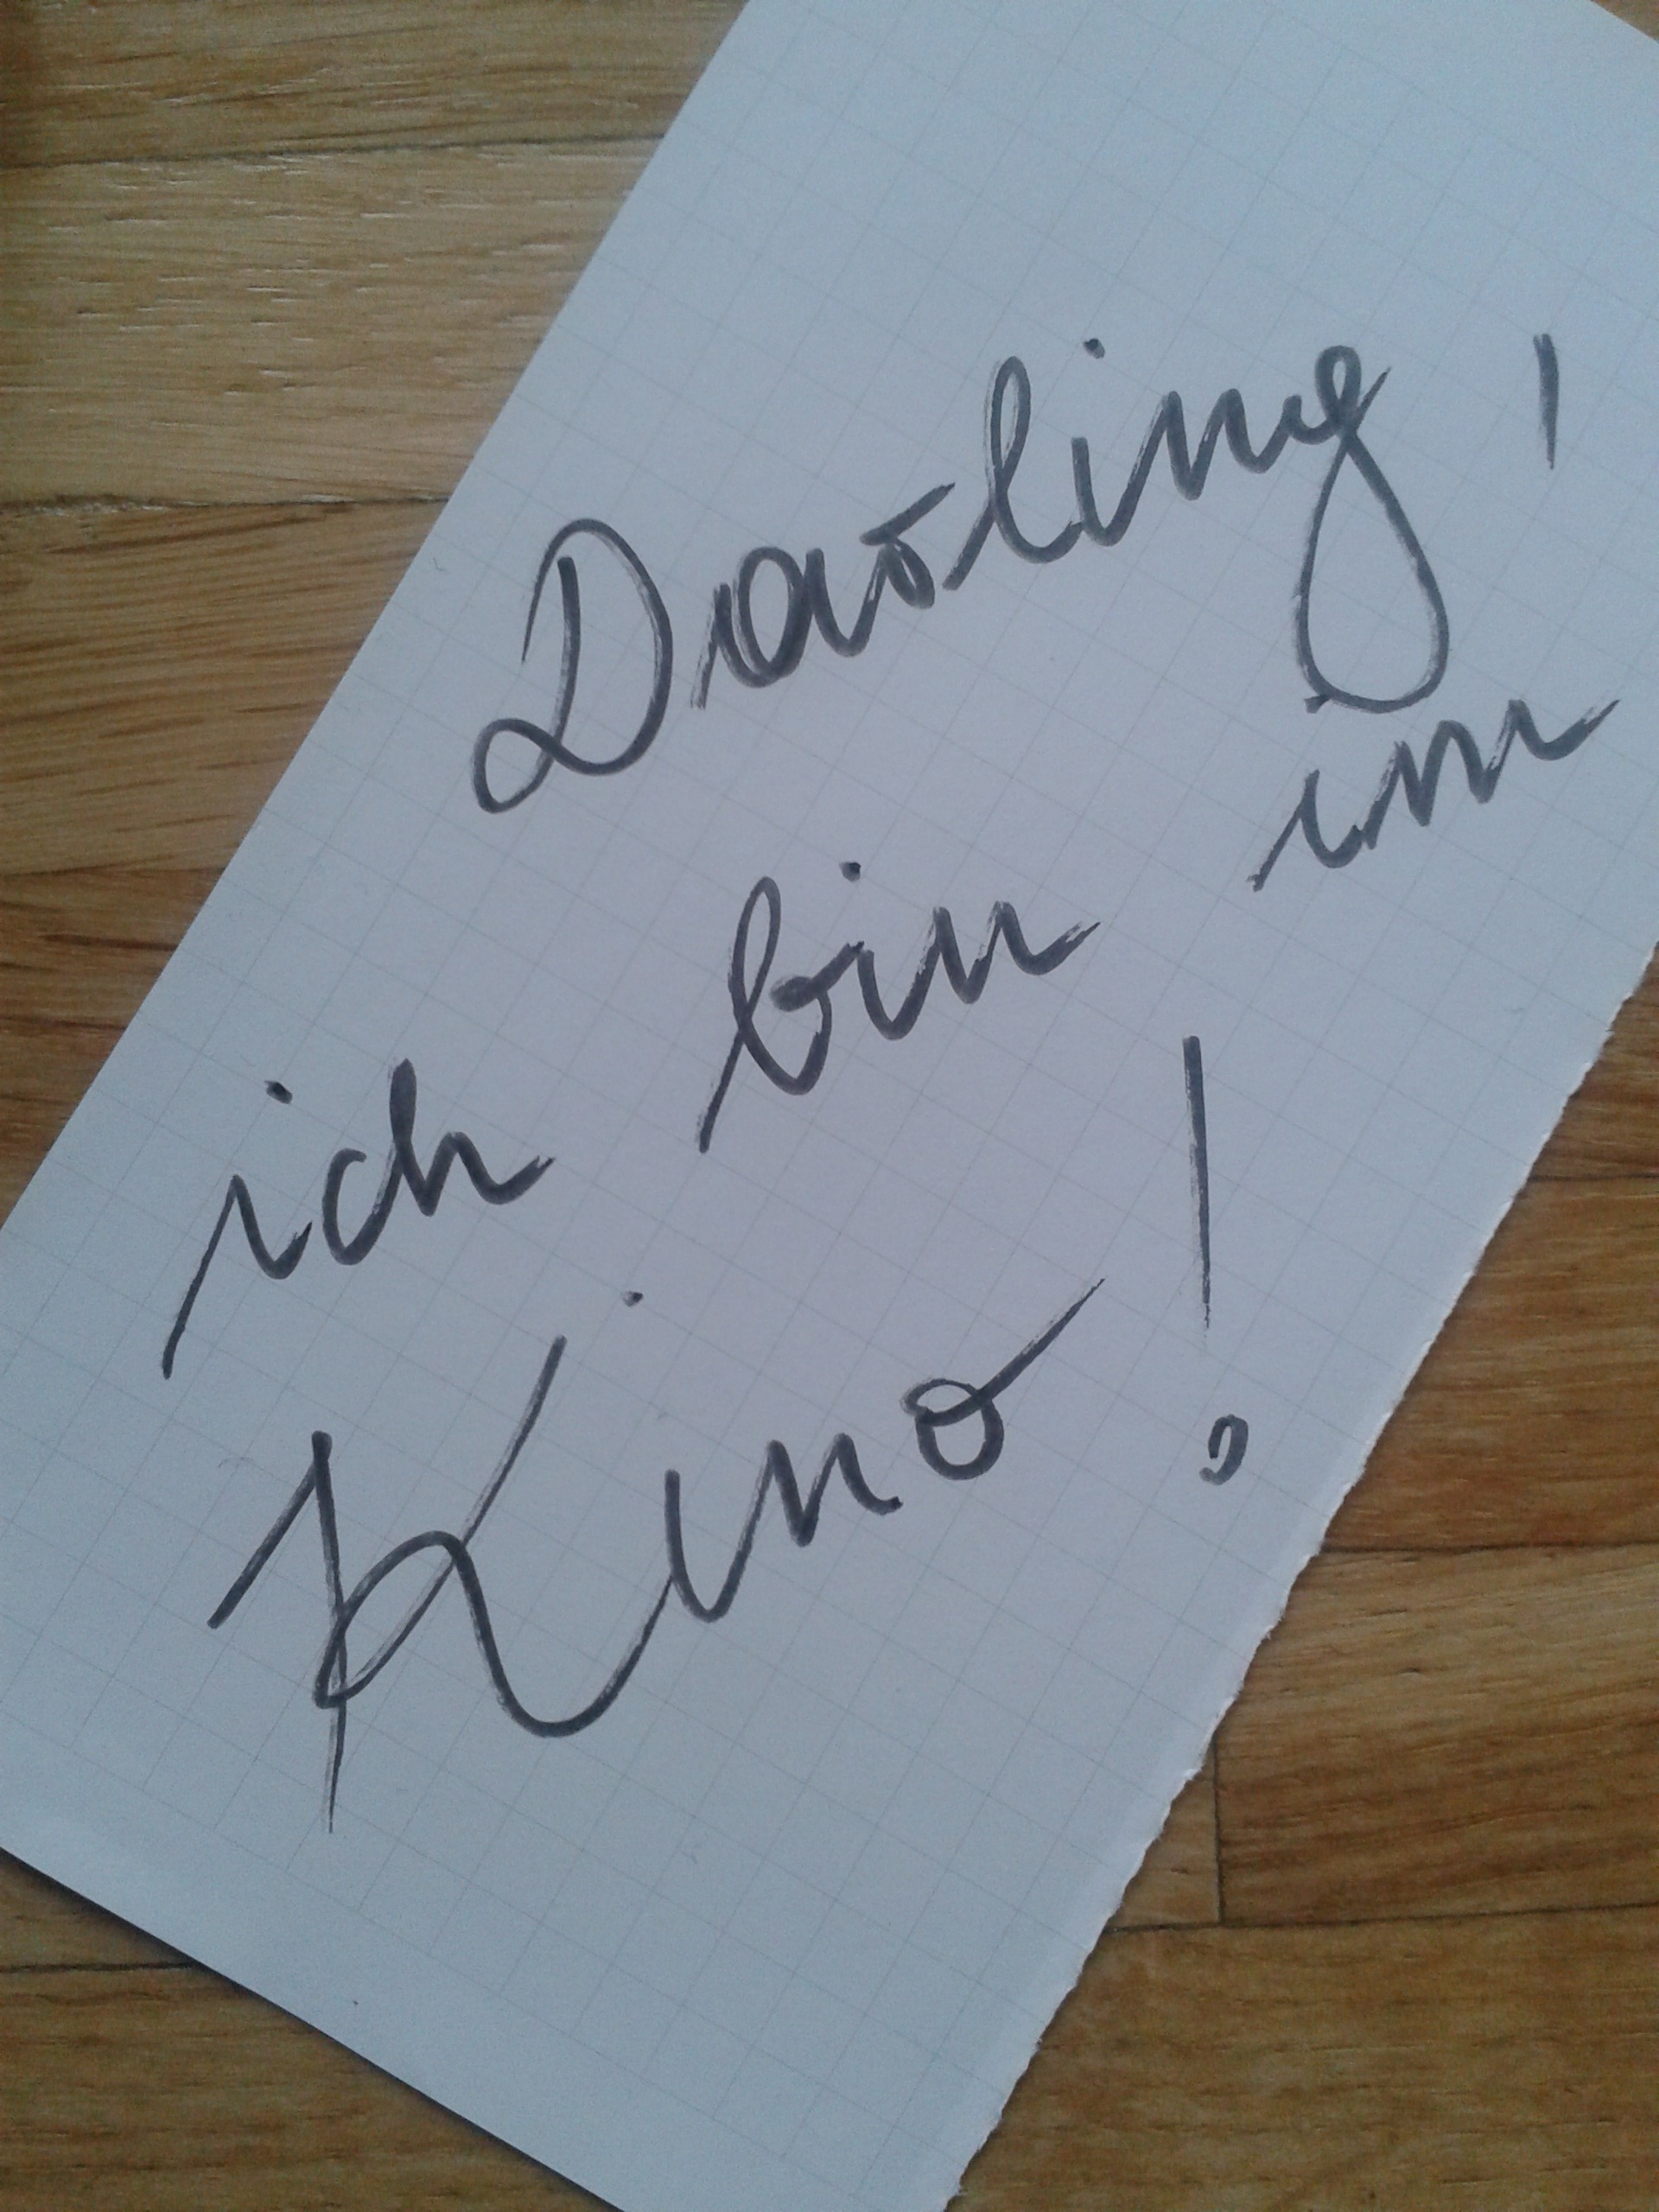 Darling,
ich bin im
Kino!